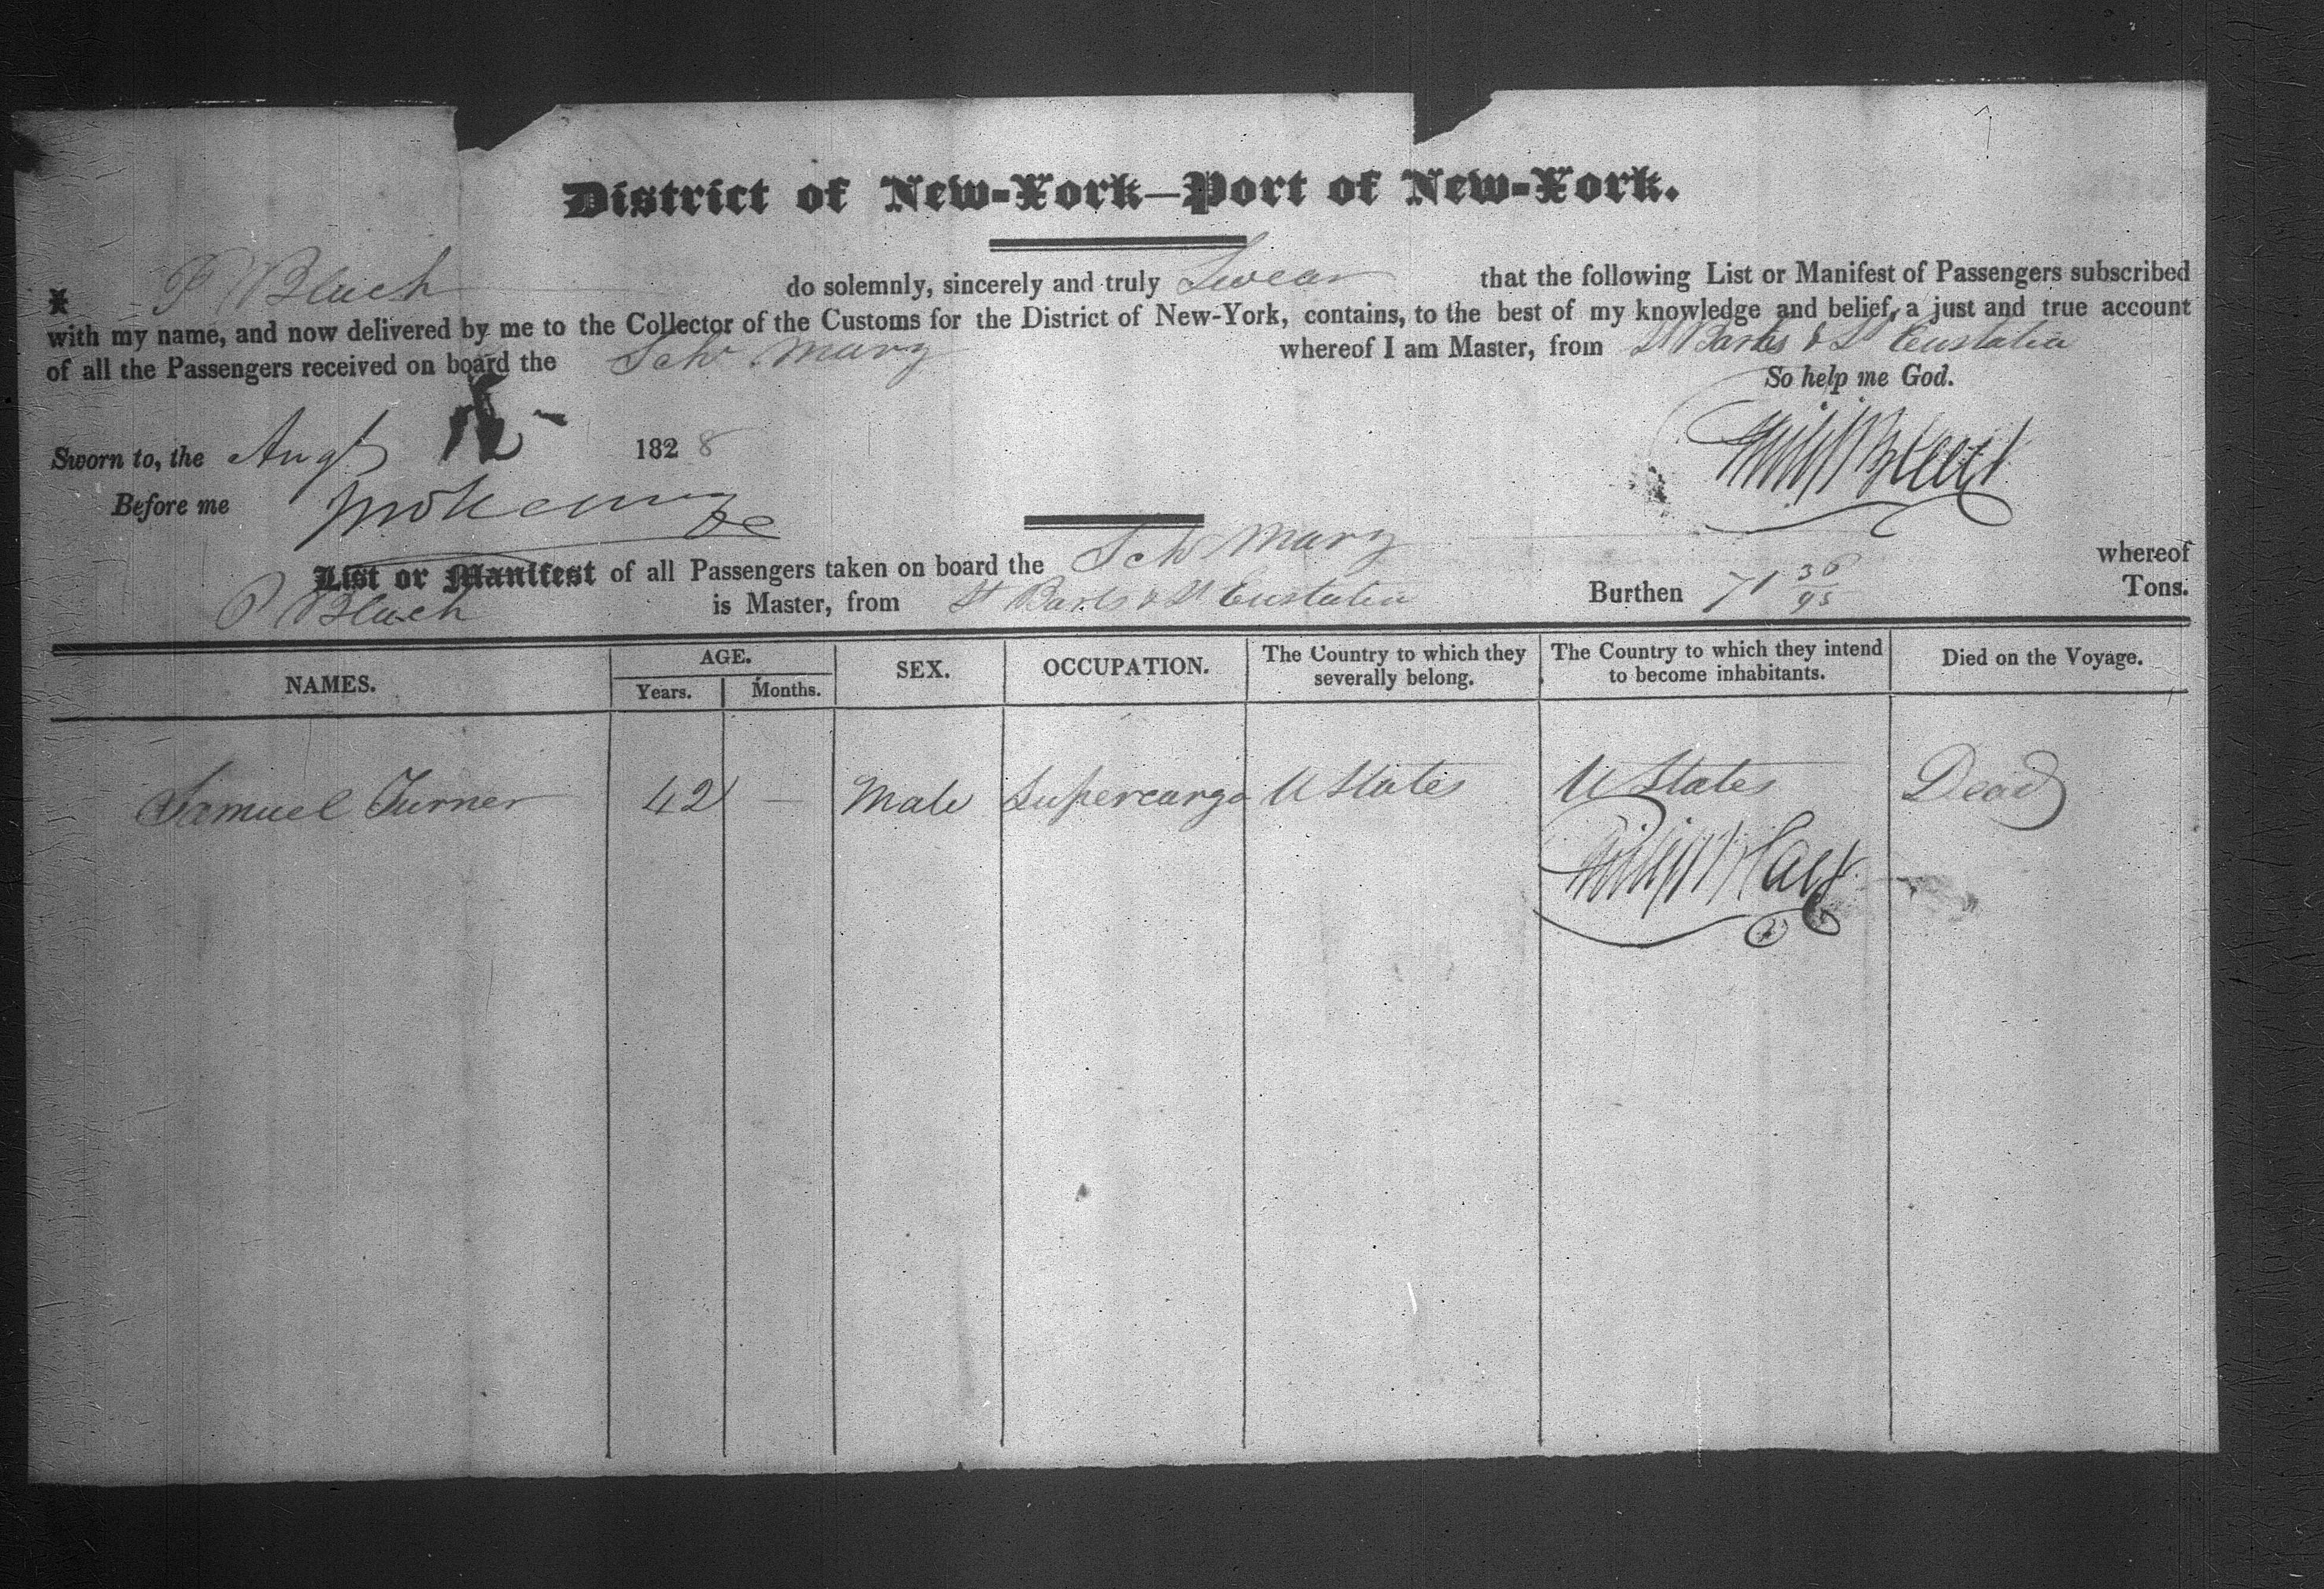 District of New-York—Port of New-York.
I P Blach do solemnly, sincerely and truly Swear that the following List or Manifest of Passengers subscribed
with my name, and now delivered by me to the Collector of the Customs for the District of New-York, contains, to the best of my knowledge and belief, a just and true account
of all the Passengers received on board the Schr Mary whereof I am Master, from St Barts & St Eustatia
So help me God.
Sworn to, the Augt 1828
Before me
List or Manifest of all Passengers taken on board the Schr Mary whereof
P Blach is Master, from St Barts & St Eustatia Burthen 71 36/95 Tons.
NAMES. AGE. SEX. OCCUPATION. The Country to which they severally belong. The Country to which they intend to become inhabitants. Died on the Voyage.
Years. Months.
Samuel Turner 42 — Male Supercargo U States U States Dead